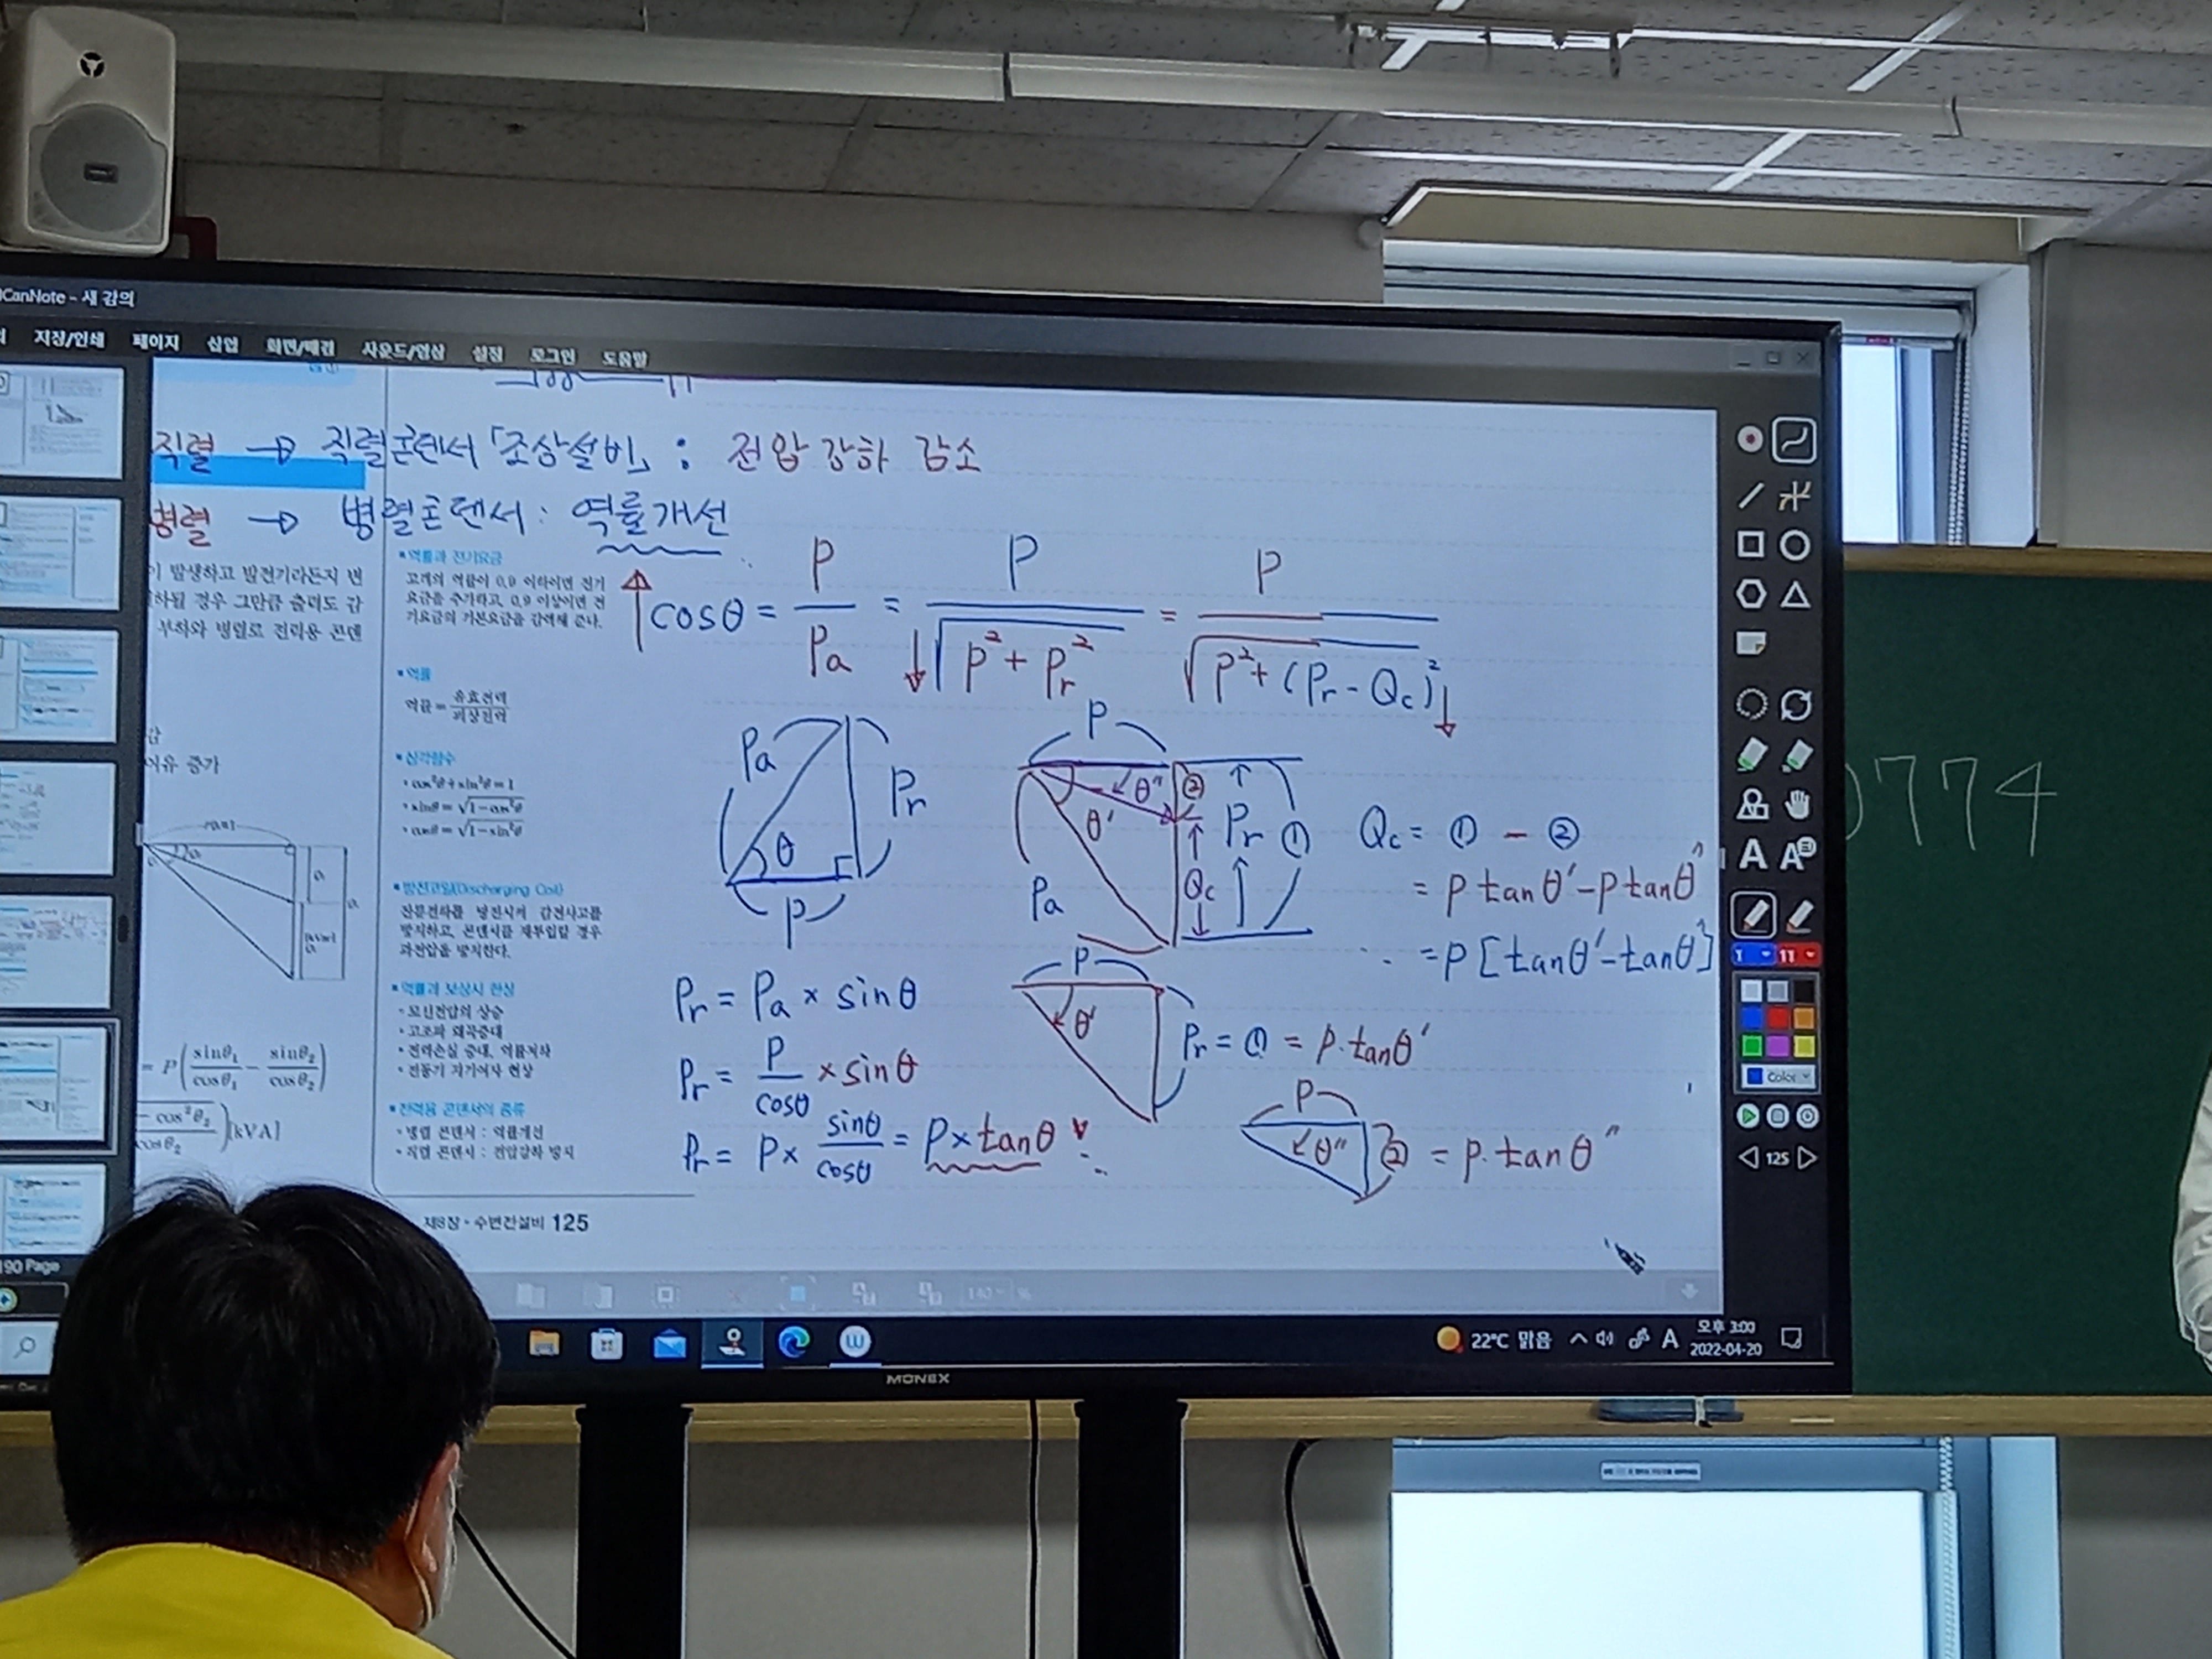 CanNote - 새 강의
저장/인쇄 페이지 삽입 화면/배경 사운드/영상 설정 로그인 도움말
직렬 → 직렬콘덴서 「조상설비」 : 전압강하 감소
병렬 → 병렬콘덴서 : 역률개선
이 발생하고 발전기라든지 변
하될 경우 그만큼 출력도 감
부하와 병렬로 전력용 콘덴
여유 증가
= P(sinθ₁/cosθ₁ - sinθ₂/cosθ₂)
- cos²θ₂/cosθ₂)[kVA]
▪역률과 전기요금
고객의 역률이 0.9 이하이면 전기
요금을 추가하고, 0.9 이상이면 전
기요금의 기본요금을 감액해 준다.
▪역률
역률 = 유효전력/피상전력
▪삼각함수
• cos²θ + sin²θ = 1
• sinθ = √1-cos²θ
• cosθ = √1-sin²θ
▪방전코일(Discharging Coil)
잔류전하를 방전시켜 감전사고를
방지하고, 콘덴서를 재투입할 경우
과전압을 방지한다.
▪역률과 보상시 현상
• 모선전압의 상승
• 고조파 왜곡증대
• 전력손실 증대, 역률저하
• 전동기 자기여자 현상
▪전력용 콘덴서의 종류
• 병렬 콘덴서 : 역률개선
• 직렬 콘덴서 : 전압강하 방지
제8장 • 수변전설비 125
↑ cosθ = P/Pa = P/↓√P²+Pr² = P/√P²+(Pr-Qc)² ↓
Pa Pr θ P
P θ' θ'' ② Pr ① Qc Pa
Qc = ① - ②
= P tanθ' - P tanθ''
= P [tanθ' - tanθ'']
Pr = Pa × sinθ
Pr = P/cosθ × sinθ
Pr = P × sinθ/cosθ = P × tanθ
P θ' Pr = ① = P·tanθ'
P θ'' ② = P·tanθ''
1 11
Color
125
190 Page
140 %
22°C 맑음 A 오후 3:00
2022-04-20
MONEX
0774